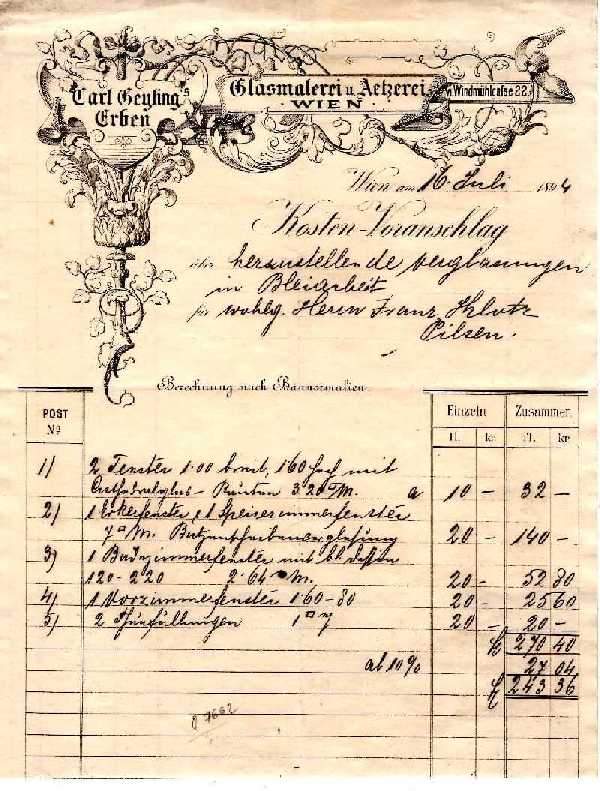 Carl Geyling's
Erben
Glasmalerei u. Aetzerei
WIEN
VI. Windmühlgasse 22.
Wien am 16. Juli 1894
Kosten-Voranschlag
über herzustellende Verglasungen
in Bleiarbeit
für wohlg. Herrn Franz Klotz
Pilsen.
Berechnung nach
POST Einzeln Zusammen
No fl. kr. fl. kr.
1) 2 Fenster 1·00 breit, 1·60 hoch mit
Cathedralglas- Rauten 3·20 □M. a 10 - 32 -
2) 1 Erkerfenster, 1 Speisezimmerfenster
7 □/M. Butzenscheibenverglasung 20 - 140 -
3) 1 Badezimmerfenster mit
120 - 2·20 2·64 □M. 20 - 52 80
4) 1 Vorzimmerfenster 1·60 - 80 20 - 25 60
5) 2 Thürfüllungen 1 □ 20 - 20 -
fl. 270 40
ab 10% 27 04
fl. 243 36
7662